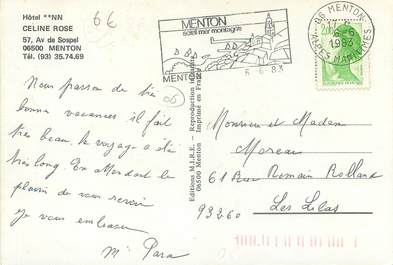 Hôtel **NN
CELINE ROSE
57, Av de Sospel
06500 MENTON
Tél. (93) 35.74.69
6€
MENTON
soleil mer montagne
MENTON
6-6 83
06 MENTON
17H
6-6
1983
ALPES MARITIMES
2,00
06
Nous passon de trés
bonne vacances il fait
tres beau. le voyage a été
très long. En attendant le
plaisir de vous revoir
Je vous embrasse
Me Para
Editions M.I.R.E. - Reproduction
06500 Menton Imprimé en France
Monsieur et Madam
Moreau
61 Rue Romain Rolland
93260 Les Lilas